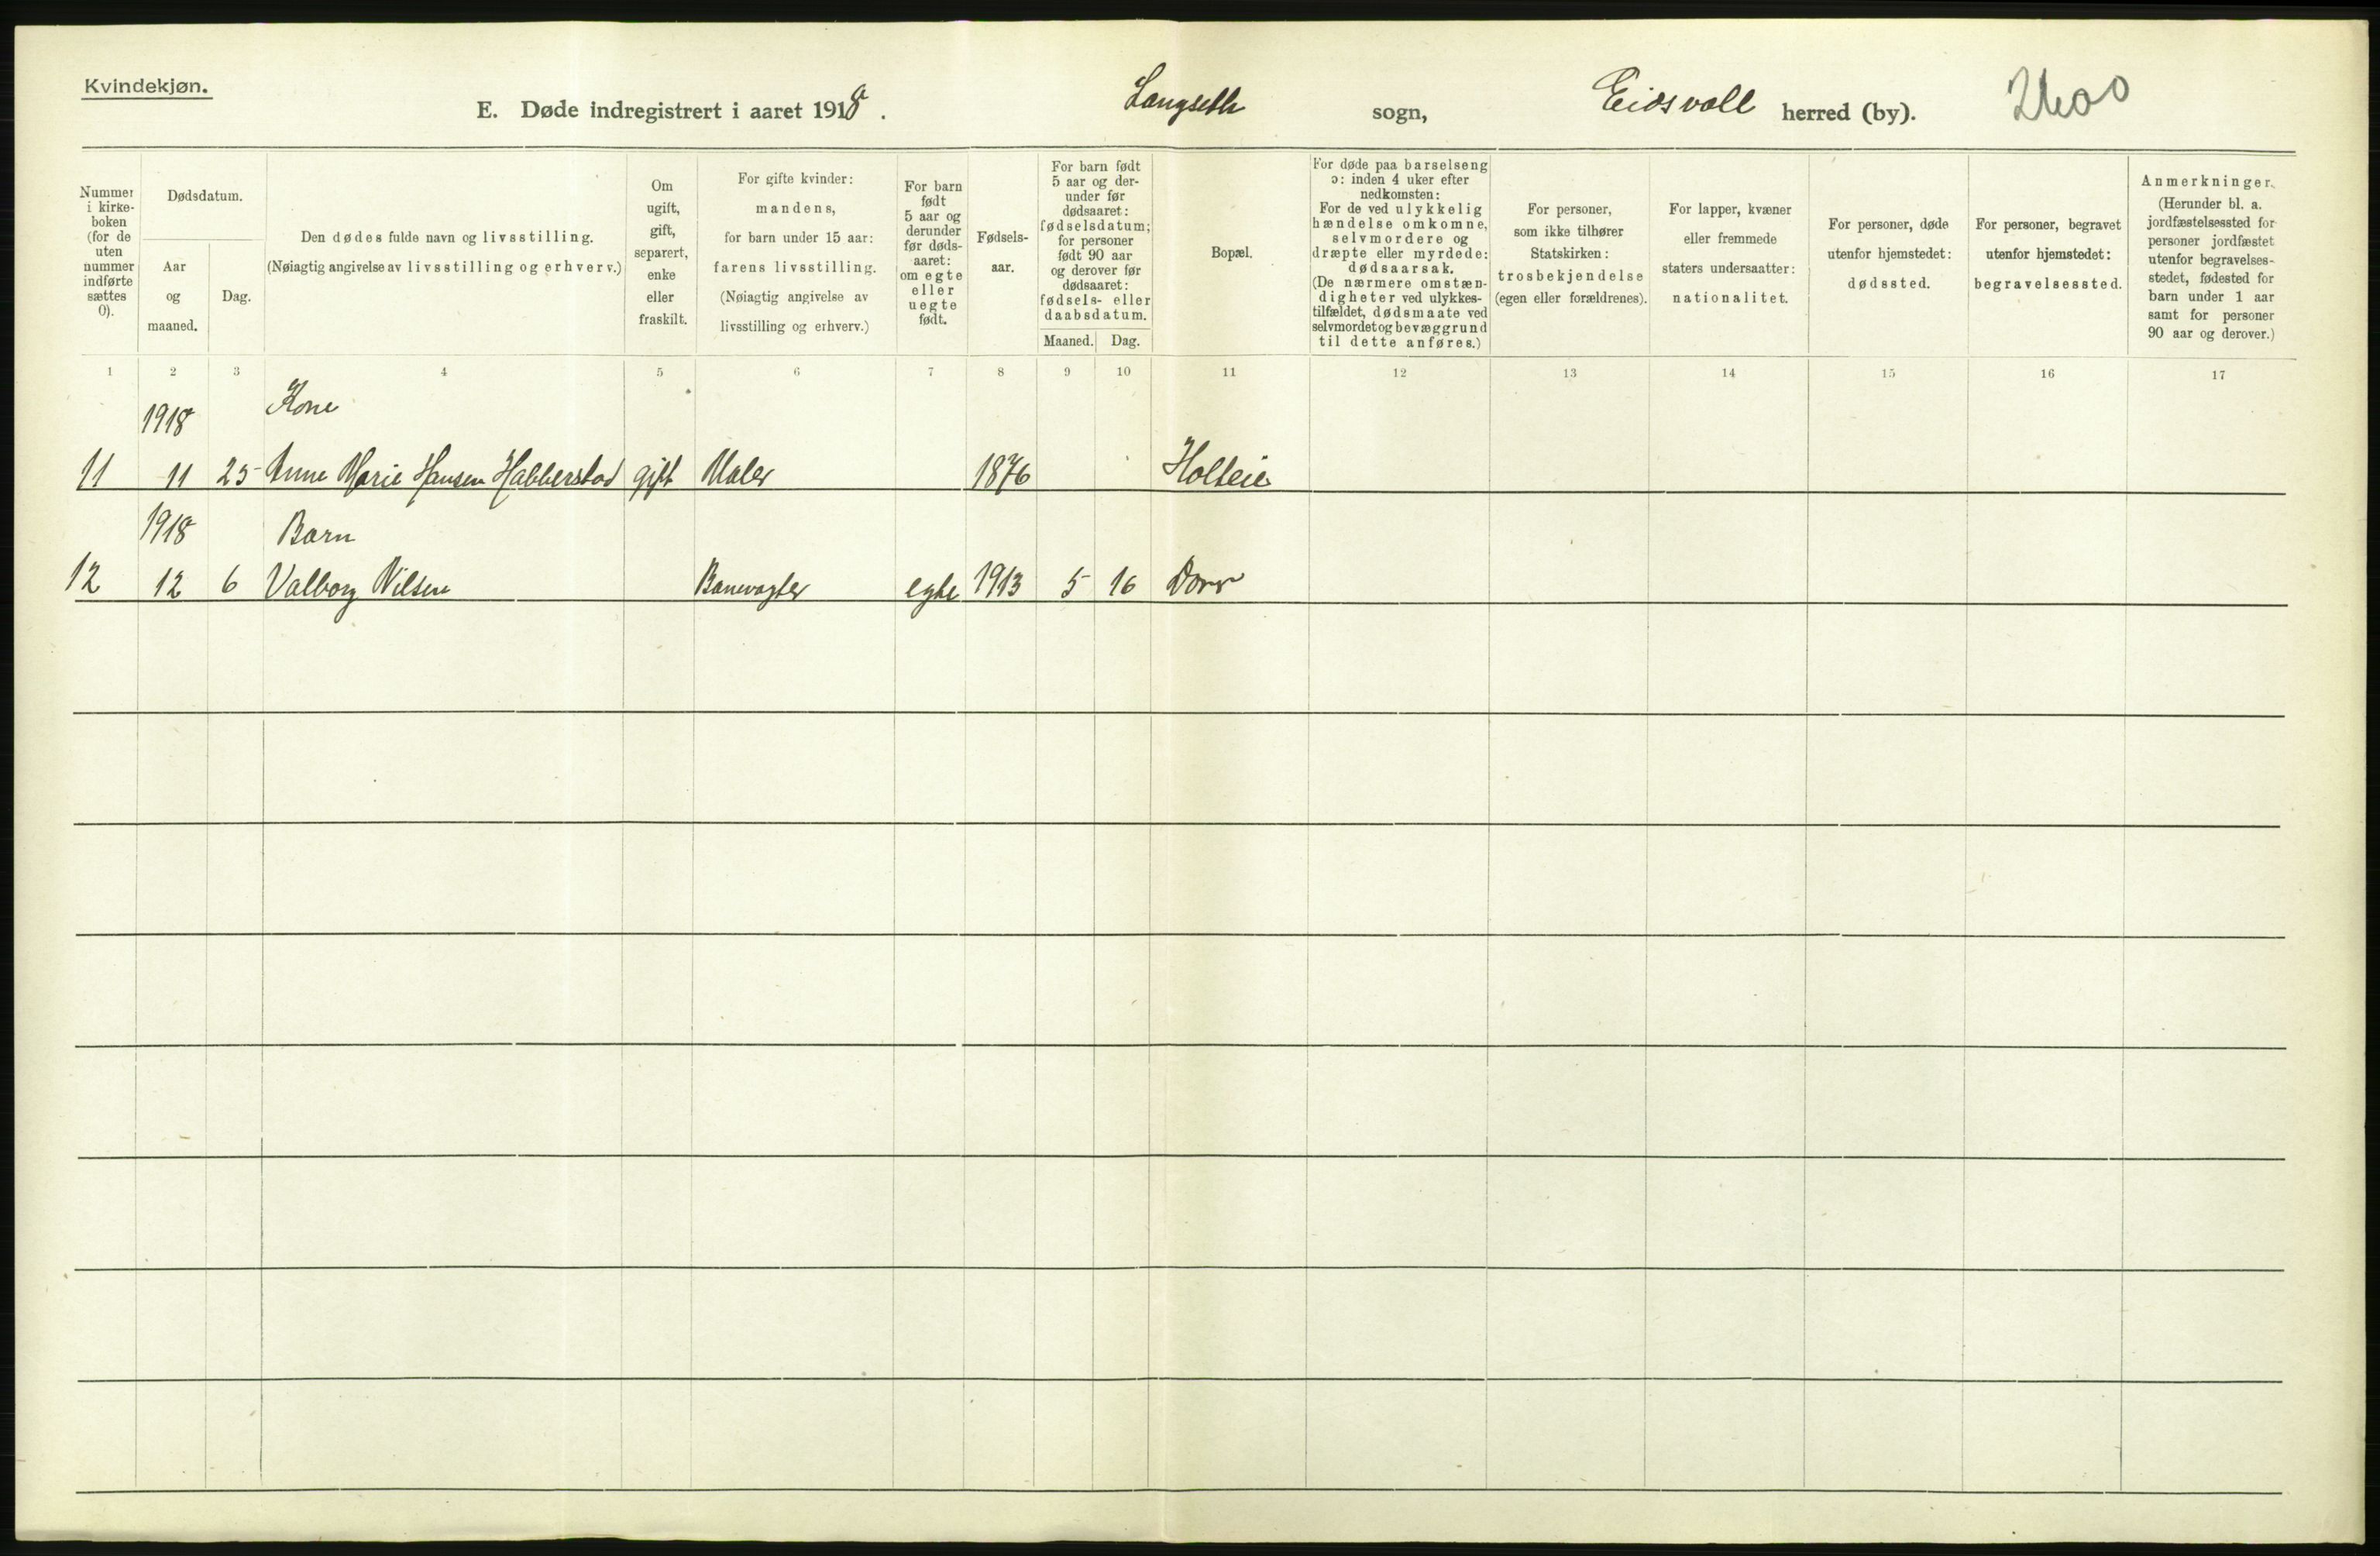 Kvindekjøn.
E. Døde indregistrert i aaret 1918. Langseth sogn, Eidsvoll herred (by).
Nummer i kirke-boken (for de uten nummer indførte sættes 0).
Dødsdatum.
Aar og maaned.
Dag.
Den dødes fulde navn og livsstilling.
(Nøiagtig angivelse av livsstilling og erhverv.)
Om ugift, gift, separert, enke eller fraskilt.
For gifte kvinder: mandens, for barn under 15 aar: farens livsstilling. (Nøiagtig angivelse av livsstilling og erhverv.)
For barn født 5 aar og derunder før døds-aaret: om egte eller uegte født.
Fødsels-aar.
For barn født 5 aar og der-under før dødsaaret: fødselsdatum; for personer født 90 aar og derover før dødsaaret: fødsels- eller daabsdatum.
Maaned.
Dag.
Bopæl.
For døde paa barselseng ɔ: inden 4 uker efter nedkomsten: For de ved ulykkelig hændelse omkomne, selvmordere og dræpte eller myrdede: dødsaarsak. (De nærmere omstæn-digheter ved ulykkes-tilfældet, dødsmaate ved selvmordet og bevæggrund til dette anføres.)
For personer, som ikke tilhører Statskirken: trosbekjendelse (egen eller forældrenes).
For lapper, kvæner eller fremmede staters undersaatter: nationalitet.
For personer, døde utenfor hjemstedet: dødssted.
For personer, begravet utenfor hjemstedet: begravelsessted.
Anmerkninger. (Herunder bl. a. jordfæstelsessted for personer jordfæstet utenfor begravelses-stedet, fødested for barn under 1 aar samt for personer 90 aar og derover.)
1 2 3 4 5 6 7 8 9 10 11 12 13 14 15 16 17
1918 Kone
11 11 25 Anne Marie Hansen Habberstad gift Maler 1876 Holteie
1918 Barn
12 12 6 Valborg Nilsen Banevogter egte 1913 5 16 Dorr